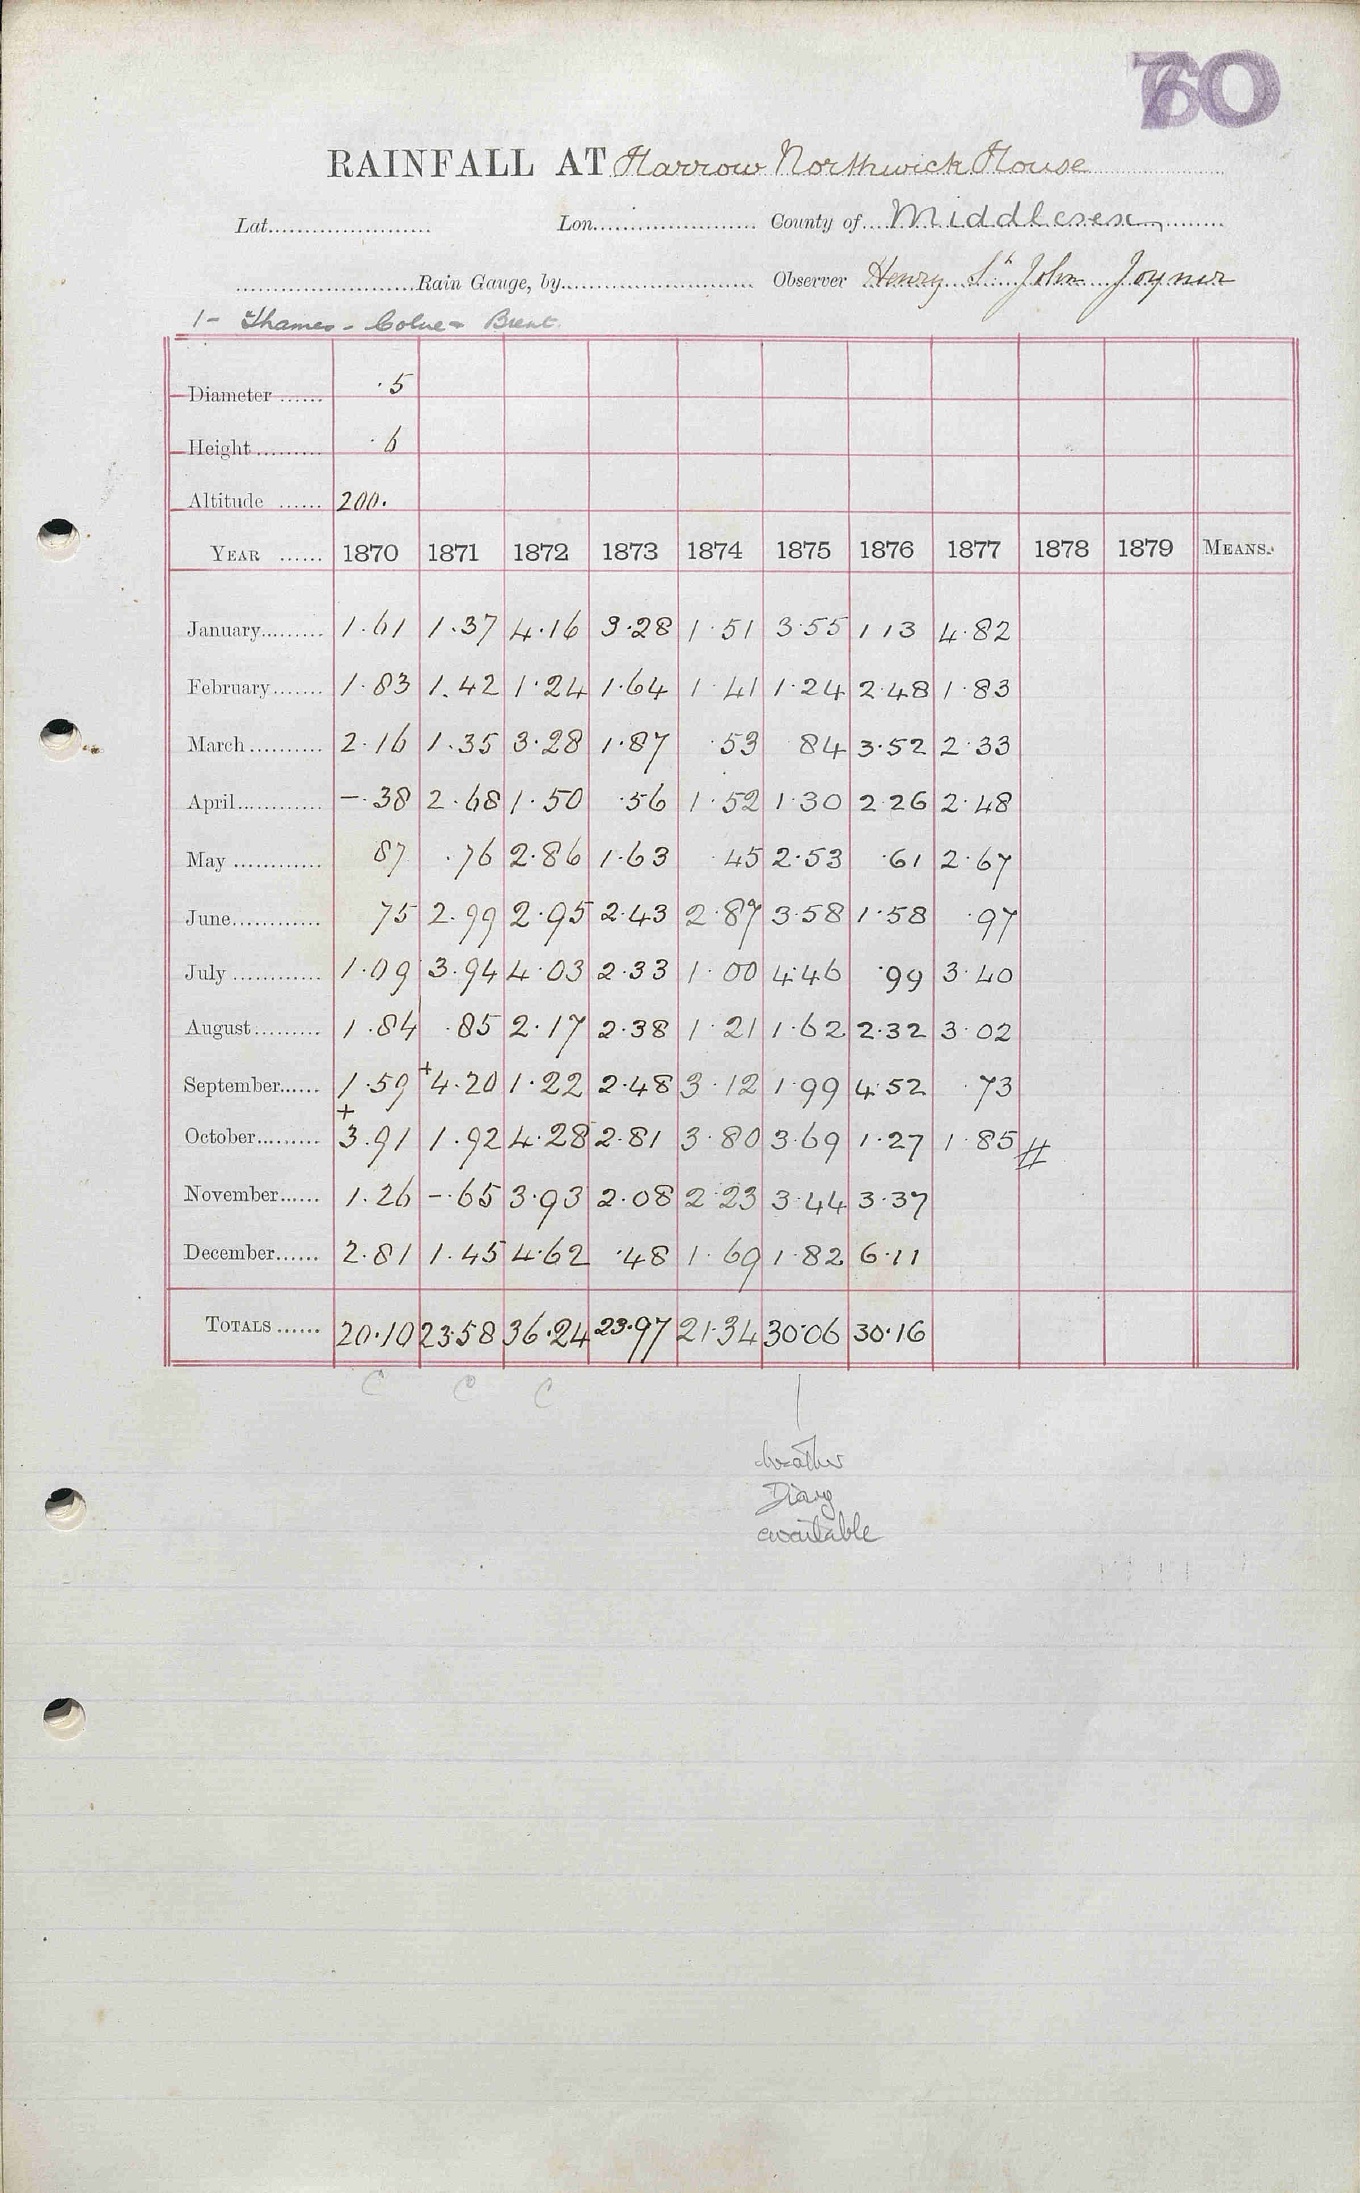 760
RAINFALL AT Harrow Northwick House
Lat. Lon. County of Middlesex
Rain Gauge, by Observer Henry St John Joyner
1- Thames - Colne - Brent
Diameter ...... ·5
Height ......... ·6
Altitude ...... 200.
YEAR ...... 1870 1871 1872 1873 1874 1875 1876 1877 1878 1879 MEANS.
January......... 1·61 1·37 4·16 3·28 1·51 3·55 1 13 4·82
February....... 1·83 1.42 1·24 1·64 1·41 1·24 2·48 1·83
March .......... 2·16 1·35 3·28 1·87 ·53 84 3·52 2·33
April............ -·38 2·68 1·50 ·56 1·52 1·30 2·26 2·48
May ............ 87 ·76 2·86 1·63 45 2·53 ·61 2·67
June............ 75 2·99 2·95 2·43 2·87 3·58 1·58 ·97
July ............ 1·09 3·94 4·03 2·33 1·00 4·46 ·99 3·40
August......... 1·84 ·85 2·17 2·38 1·21 1·62 2·32 3·02
September...... 1·59 +4·20 1·22 2·48 3·12 1·99 4·52 ·73
October......... +3·91 1·92 4·28 2·81 3·80 3·69 1·27 1·85 //
November...... 1·26 -·65 3·93 2·08 2·23 3·44 3·37
December...... 2·81 1·45 4·62 ·48 1·69 1·82 6·11
TOTALS ...... 20·10 23·58 36·24 23·97 21·34 30·06 30·16
C C C
Weather
Diary
available